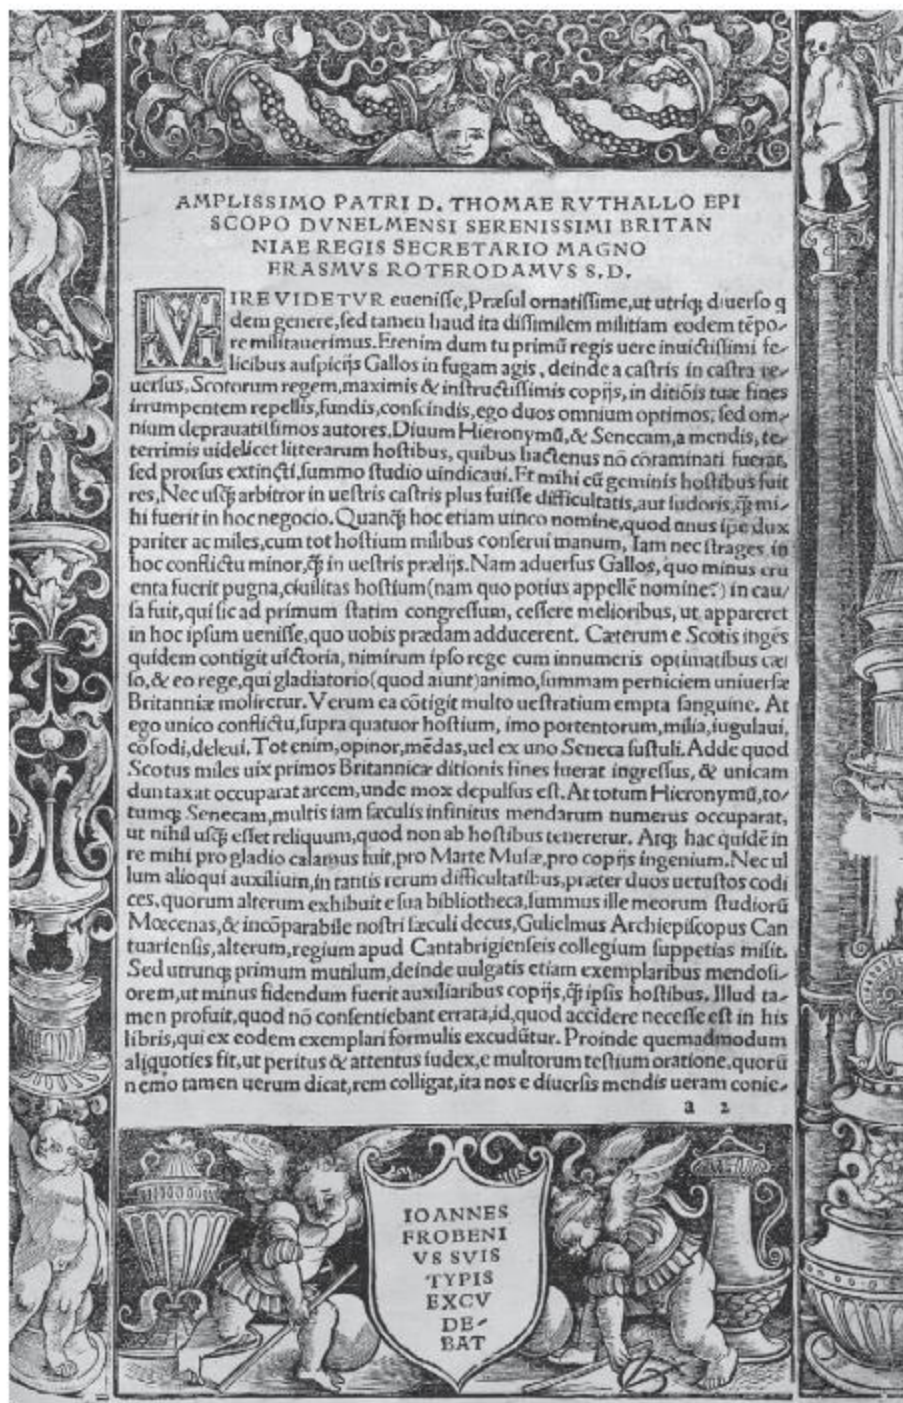 AMPLISSIMO PATRI D. THOMAE RVTHALLO EPI
SCOPO DVNELMENSI SERENISSIMI BRITAN
NIAE REGIS SECRETARIO MAGNO
ERASMVS ROTERODAMVS S.D.
MIRE VIDETVR eueniſſe, Præſul ornatiſſime, ut utriq; diuerſo q
dem genere, ſed tamen haud ita diſſimilem militiam eodem tẽpo-
re militauerimus. Etenim dum tu primũ regis uere inuictiſſimi fe-
licibus auſpicijs Gallos in fugam agis, deinde a caſtris in caſtra re-
uerſus, Scotorum regem, maximis & inſtructiſſimis copijs, in ditiõis tuæ fines
irrumpentem repellis, fundis, conſcindis, ego duos omnium optimos, ſed om-
nium deprauatiſſimos autores. Diuum Hieronymũ, & Senecam, a mendis, te-
terrimis uidelicet litterarum hoſtibus, quibus hactenus nõ cõtaminati fuerãt,
ſed prorſus extincti, ſummo ſtudio uindicaui. Et mihi cũ geminis hoſtibus fuit
res, Nec uſq̃ arbitror in ueſtris caſtris plus fuiſſe difficultatis, aut ſudoris, q̃ mi-
hi fuerit in hoc negocio. Quanq̃ hoc etiam uinco nomine, quod unus ipe dux
pariter ac miles, cum tot hoſtium milibus conſerui manum, Iam nec ſtrages in
hoc conflictu minor, q̃ in ueſtris prælijs. Nam aduerſus Gallos, quo minus cru
enta fuerit pugna, ciuilitas hoſtium (nam quo potius appellẽ nomine?) in cau/
ſa fuit, qui ſic ad primum ſtatim congreſſum, ceſſere melioribus, ut appareret
in hoc ipſum ueniſſe, quo uobis prædam adducerent. Cæterum e Scotis ingẽs
quidem contigit uictoria, nimirum ipſo rege cum innumeris optimatibus cæ
ſo, & eo rege, qui gladiatorio (quod aiunt) animo, ſummam perniciem uniuerſæ
Britanniæ moliretur. Verum ea cõtigit multo ueſtratium empta ſanguine. At
ego unico conflictu, ſupra quatuor hoſtium, imo portentorum, milia, iugulaui,
cõfodi, deleui. Tot enim, opinor, mẽdas, uel ex uno Seneca ſuſtuli. Adde quod
Scotus miles uix primos Britannicæ ditionis fines fuerat ingreſſus, & unicam
duntaxat occuparat arcem, unde mox depulſus eſt. At totum Hieronymũ, to-
tumq; Senecam, multis iam ſæculis infinitus mendarum numerus occuparat,
ut nihil uſq̃ eſſet reliquum, quod non ab hoſtibus teneretur. Atq; hac quidẽ in
re mihi pro gladio calamus fuit, pro Marte Muſæ, pro copijs ingenium. Nec ul
lum alioqui auxilium, in tantis rerum difficultatibus, præter duos uetuſtos codi
ces, quorum alterum exhibuit e ſua bibliotheca, ſummus ille meorum ſtudiorũ
Mœcenas, & incõparabile noſtri ſæculi decus, Gulielmus Archiepiſcopus Can
tuarienſis, alterum, regium apud Cantabrigienſeis collegium ſuppetias miſit.
Sed utrunq; primum mutilum, deinde uulgatis etiam exemplaribus mendoſi-
orem, ut minus fidendum fuerit auxiliaribus copijs, q̃ ipſis hoſtibus. Illud ta-
men profuit, quod nõ conſentiebant errata, id, quod accidere neceſſe eſt in his
libris, qui ex eodem exemplari formulis excudũtur. Proinde quemadmodum
aliquoties fit, ut peritus & attentus iudex, e multorum teſtium oratione, quorũ
nemo tamen uerum dicat, rem colligat, ita nos e diuerſis mendis ueram conie-
a 2
IOANNES
FROBENI
VS SVIS
TYPIS
EXCV
DE-
BAT